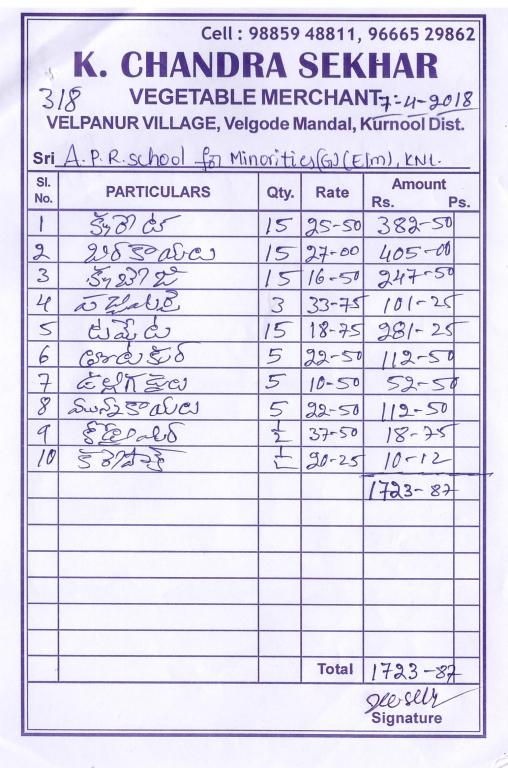 Cell : 98859 48811, 96665 29862
K. CHANDRA SEKHAR
318 VEGETABLE MERCHANT 7-4-2018
VELPANUR VILLAGE, Velgode Mandal, Kurnool Dist.
Sri A.P.R. school for Minorities (G) (E/m), KNL.
Sl. No. PARTICULARS Qty. Rate Amount Rs. Ps.
1 క్యారెట్ 15 25-50 382-50
2 బీరకాయలు 15 27-00 405-00
3 క్యాబేజీ 15 16-50 247-50
4 ప మిర్చి 3 33-75 101-25
5 టమేట 15 18-75 281-25
6 తోటకూర 5 22-50 112-50
7 ఉల్లిగడ్డలు 5 10-50 52-50
8 మునక్కాయలు 5 22-50 112-50
9 కొత్తిమీర ½ 37-50 18-75
10 కరేపాకు ½ 20-25 10-12
1723-87
Total 1723-87
Signature